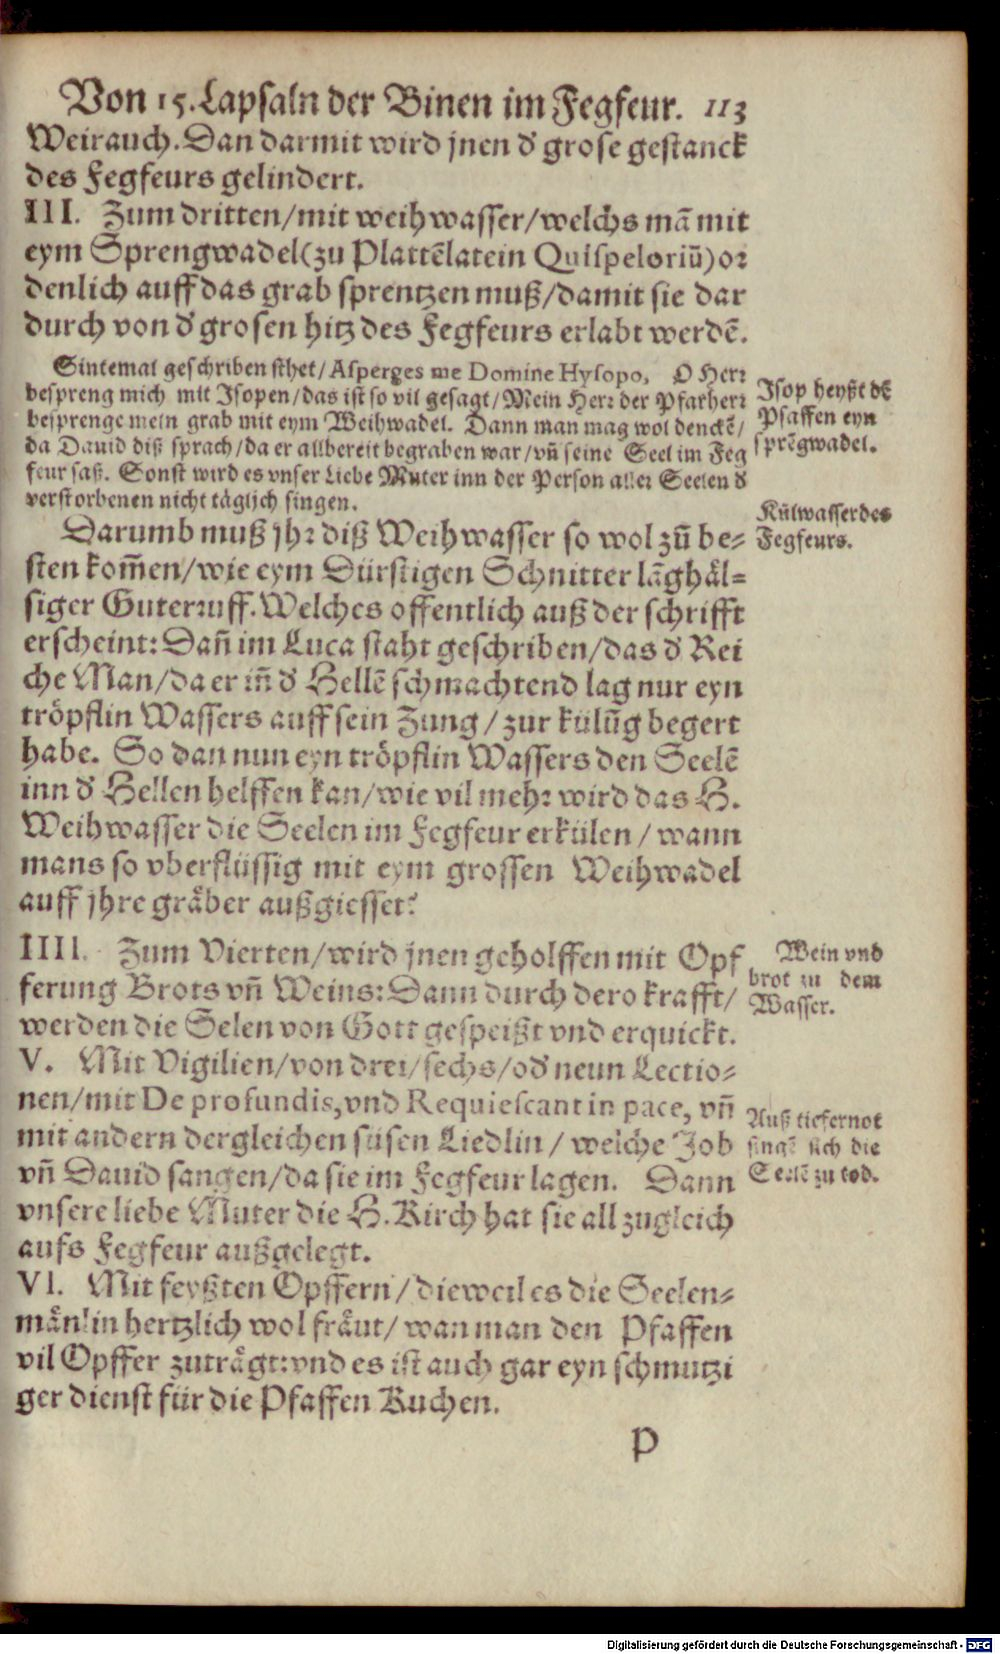 Von 15. Lapsaln der Binen im Fegfeur. 113
Weirauch. Dan darmit wird jnen d' grose gestanck
des Fegfeurs gelindert.
III. Zum dritten/mit weihwasser/welchs mā mit
eym Sprengwadel(zu Plattēlatein Quispeloriū)or
denlich auff das grab sprentzen muß/damit sie dar
durch von d' grosen hitz des Fegfeurs erlabt werdē.
Sintemal geschriben sthet/Asperges me Domine Hysopo, O Herr
bespreng mich mit Jsopen/das ist so vil gesagt/Mein Herr der Pfarherr
besprenge mein grab mit eym Weihwadel. Dann man mag wol denckē/
da Dauid diß sprach/da er allbereit begraben war/vn̄ seine Seel im Feg
feur saß. Sonst wird es vnser Liebe Muter inn der Person aller Seelen d'
verstorbenen nicht täglich singen.
Jsop heyßt dē
Pfaffen eyn
sprēgwadel.
Darumb muß jhr diß Weihwasser so wol zū be-
sten kom̄en/wie eym Dürstigen Schnitter lāghäl-
siger Guterruff. Welches offentlich auß der schrifft
erscheint: Dan̄ im Luca staht geschriben/das d' Rei
che Man/da er in̄ d' Hellē schmachtend lag nur eyn
tröpflin Wassers auff sein Zung/zur külūg begert
habe. So dan nun eyn tröpflin Wassers den Seelē
inn d' Hellen helffen kan/wie vil mehr wird das H.
Weihwasser die Seelen im Fegfeur erkülen/wann
mans so vberflüssig mit eym grossen Weihwadel
auff jhre gräber außgiesset?
Külwasser des
Fegfeurs.
IIII. Zum Vierten/wird jnen geholffen mit Opf
ferung Brots vn̄ Weins: Dann durch dero krafft/
werden die Selen von Gott gespeißt vnd erquickt.
Wein vnd
brot zu dem
Wasser.
V. Mit Vigilien/von drei/sechs/od' neun Lectio-
nen/mit De profundis, vnd Requiescant in pace, vn̄
mit andern dergleichen süsen Liedlin/welche Job
vn̄ Dauid sangen/da sie im Fegfeur lagen. Dann
vnsere liebe Muter die H. Kirch hat sie all zugleich
aufs Fegfeur außgelegt.
Auß tiefer not
singē sich die
Seelē zu tod.
VI. Mit feyßten Opffern/dieweil es die Seelen-
mänlin hertzlich wol fräut/wan man den Pfaffen
vil Opffer zuträgt: vnd es ist auch gar eyn schmutzi
ger dienst für die Pfaffen Kuchen.
P
Digitalisierung gefördert durch die Deutsche Forschungsgemeinschaft - DFG